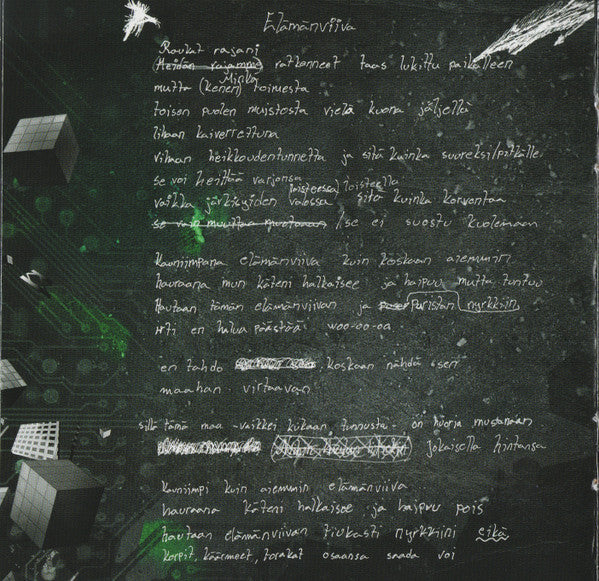 Elämänviiva
Raukat rajani
(Heidän rajamme) ratkenneet taas lukittu paikalleen
Minkä
mutta (kenen) toimesta
toisen puolen muistosta vielä kuona jäljellä
lihaan kaiverrettuna
vihaan heikkoudentunnetta ja sitä kuinka suureksi/pitkälle
se voi heittää varjonsa
loisteessa loisteella
vaikka järkisyiden valossa sitä kuinka korventaa
se vain muuttaa muotoaan /se ei suostu kuolemaan
Kauniimpana elämänviiva kuin koskaan aiemmin
hauraana mun käteni halkaisee ja haipuu mutta tuntuu
Hautaan tämän elämänviivan ja puristan nyrkkiin
irti en halua päästää woo-oo-oa
en tahdo koskaan nähdä sen
maahan virtaavan
sillä tämä maa -vaikkei kukaan tunnusta- on huoria mustanaan
jokaisella hintansa
Kauniimpi kuin aiemmin elämänviiva
hauraana käteni halkaisee ja haipuu pois
hautaan elämänviivan tiukasti nyrkkiini eikä
korpit, käärmeet, torakat osaansa saada voi